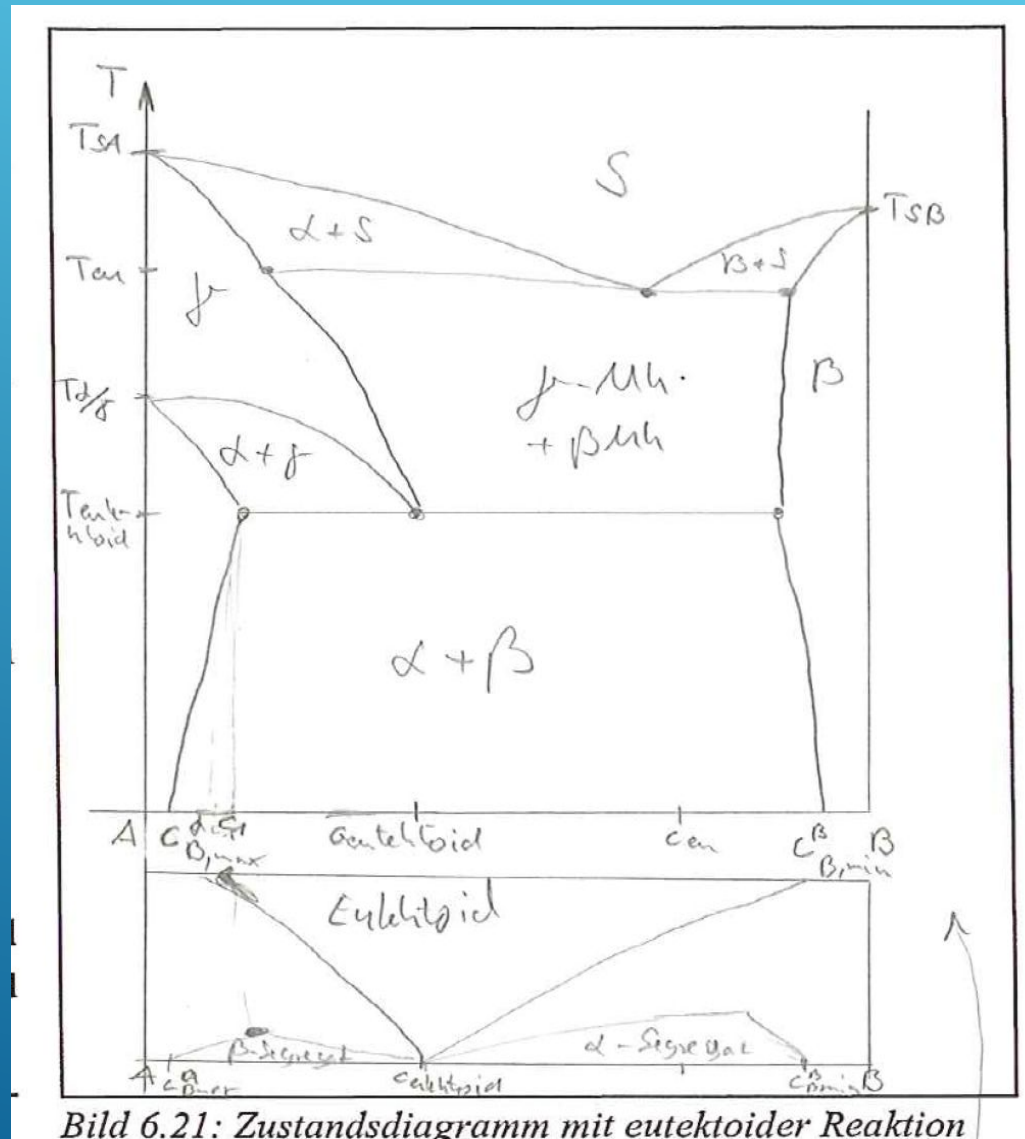 T
TSA
S
TSB
α+S
β+S
Teu
γ
Tα/γ
β
γ-Mk.
+ βMk
α+γ
Teutek-
toid
α+β
A
Ceutektoid
Ceu
C^β B,min
B
B,max
Eutektoid
β-Segregat
α-Segregat
A
Ceutektoid
C^β B,min
B
Bild 6.21: Zustandsdiagramm mit eutektoider Reaktion